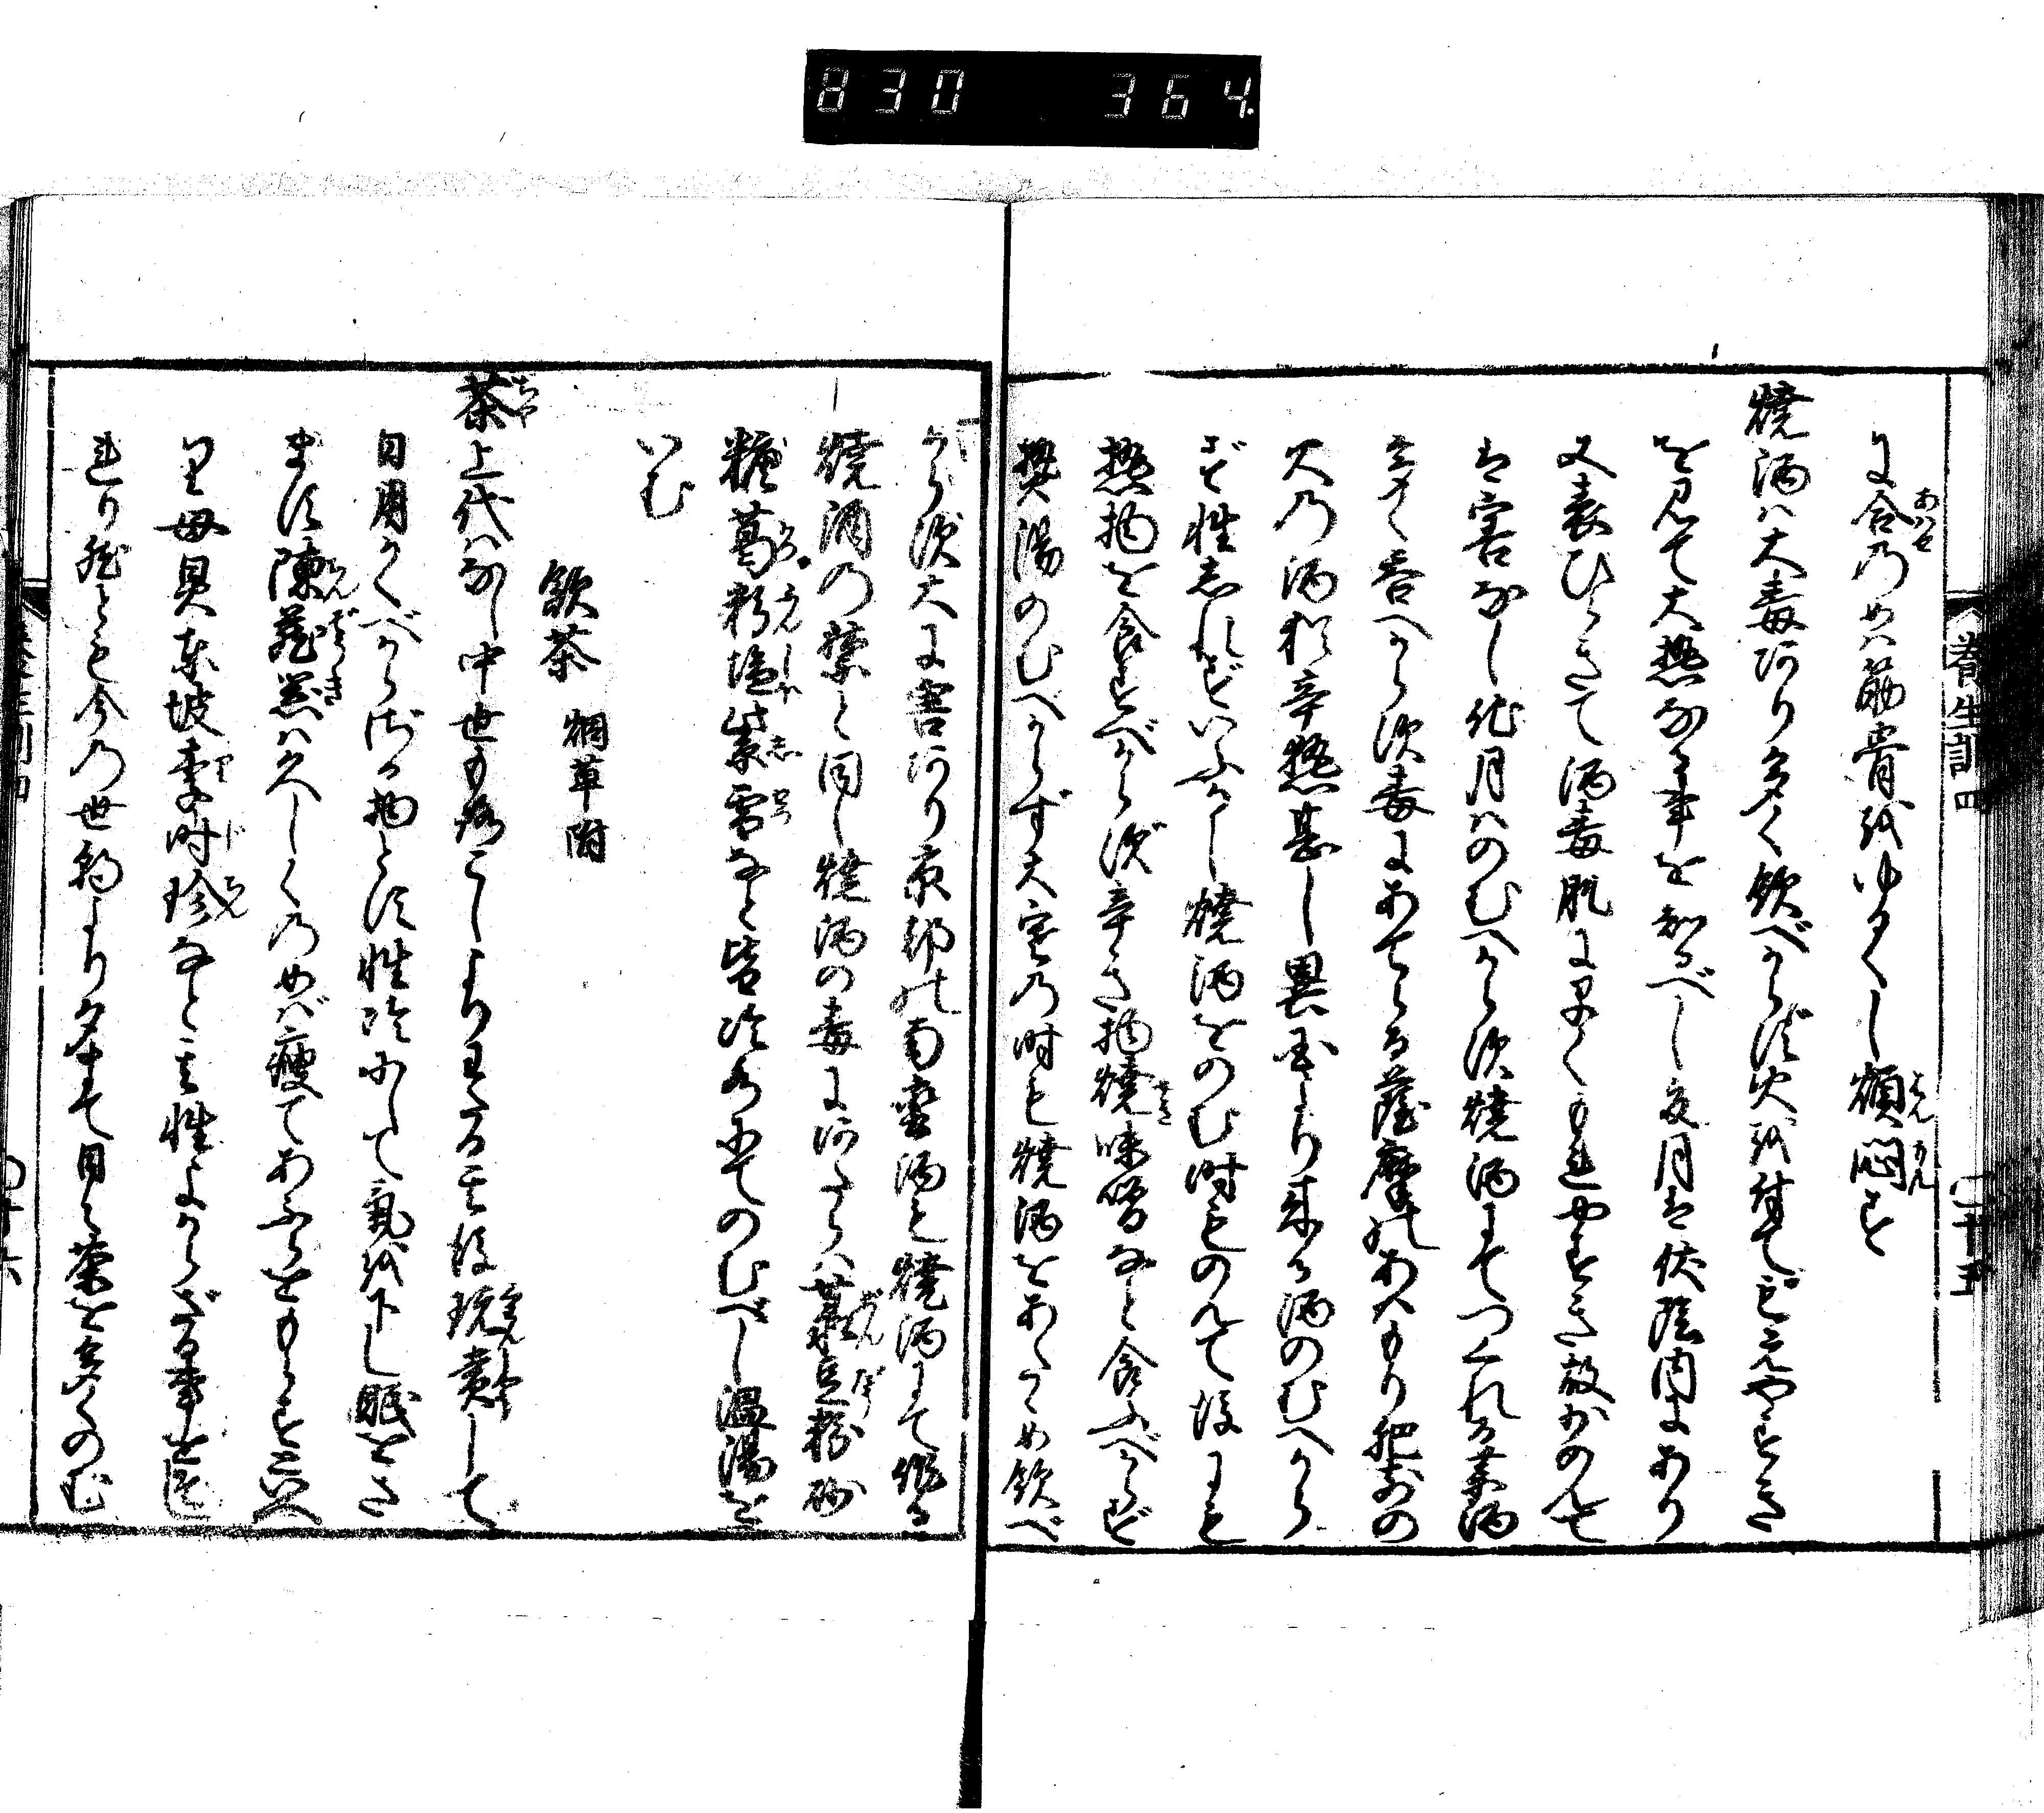 830 364
養生訓四
二十五
に合のめバ筋骨をゆるくし煩悶す
焼酒ハ大毒あり多く飲べからず火を付てもえやすき
を見て大熱なる事を知るべし夏月は伏陰内にあり
又表ひらきて酒毒肌に早くもれやすき故少のんで
は害なし他月ハのむべからず焼酒にてつくれる薬酒
多く呑べからず毒にあてらる薩摩のあハもり肥前の
火の酒猶辛熱甚し異国より来る酒のむべから
ず性しれずいぶかし焼酒をのむ時ものんで後にも
熱物を食すべからず辛き物焼味噌など食ふべからず
熱湯のむべからず大寒の時も焼酒をあたゝめ飲べ
からず大に害あり京都の南蛮酒も焼酒にて作る
焼酒の禁と同し焼酒の毒にあたらハ菉豆粉砂
糖葛粉塩紫雪など皆冷水にてのむべし温湯を
いむ
飲茶 烟草附
茶上代ハなし中世もろこしよりわたる其後玩賞して
日用かくべからざる物とす性冷にして気を下し眠をさ
ます陳蔵器ハ久しくのめば痩てあぶらをもらすといへ
り母炅東坡李時珍など其性よからざる事をそし
れり然ども今の世朝より夕まて日々茶を多くのむ